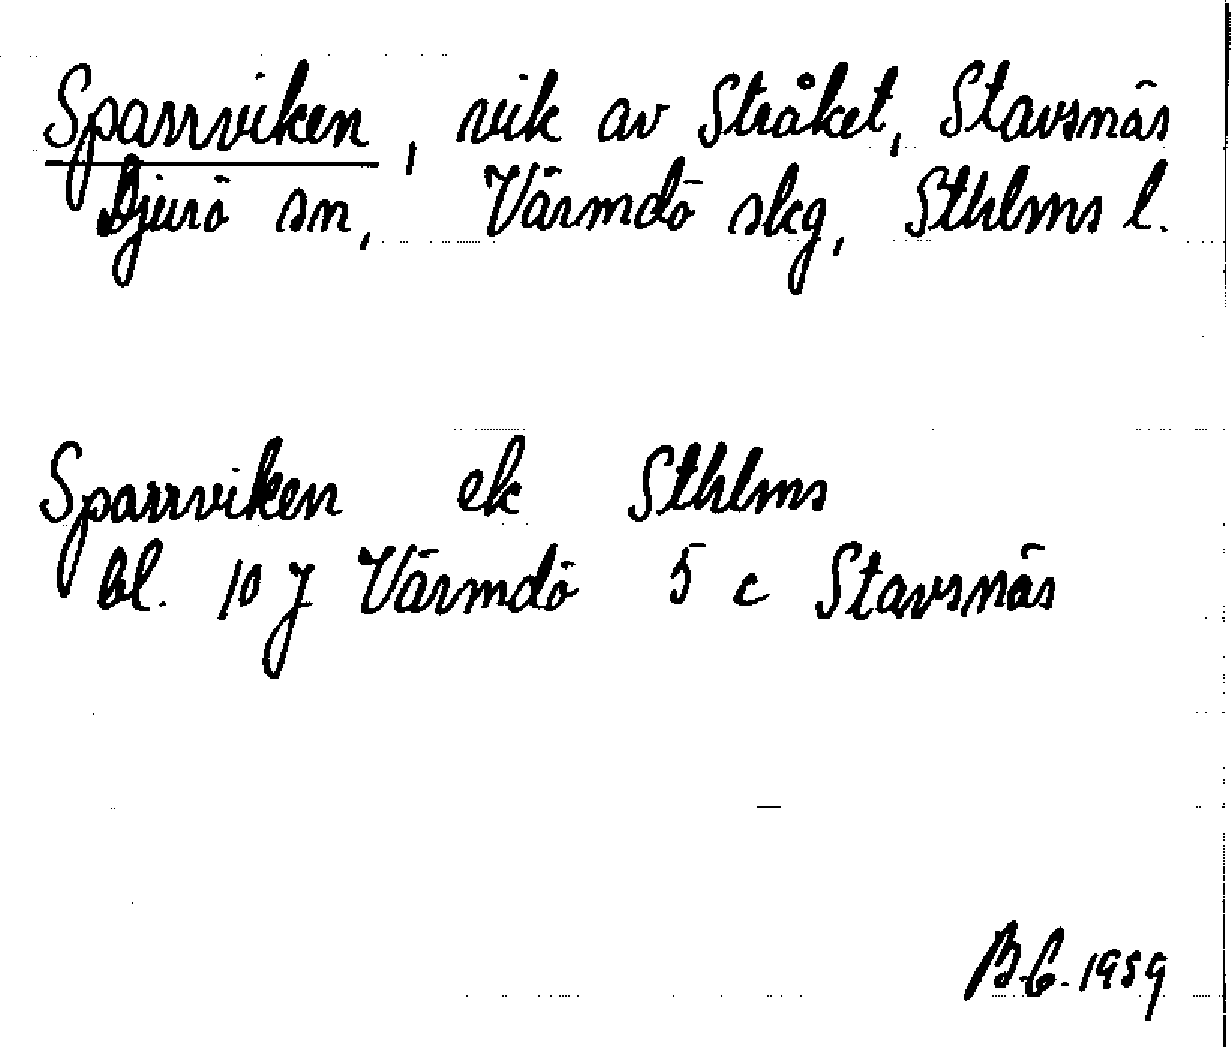 Sparrviken, vik av Stråket, Stavsnäs
Djurö sn, Värmdö skg, Sthlms l.
Sparrviken ek Sthlms
bl. 10 J Värmdö 5 c Stavsnäs
B.C. 1959